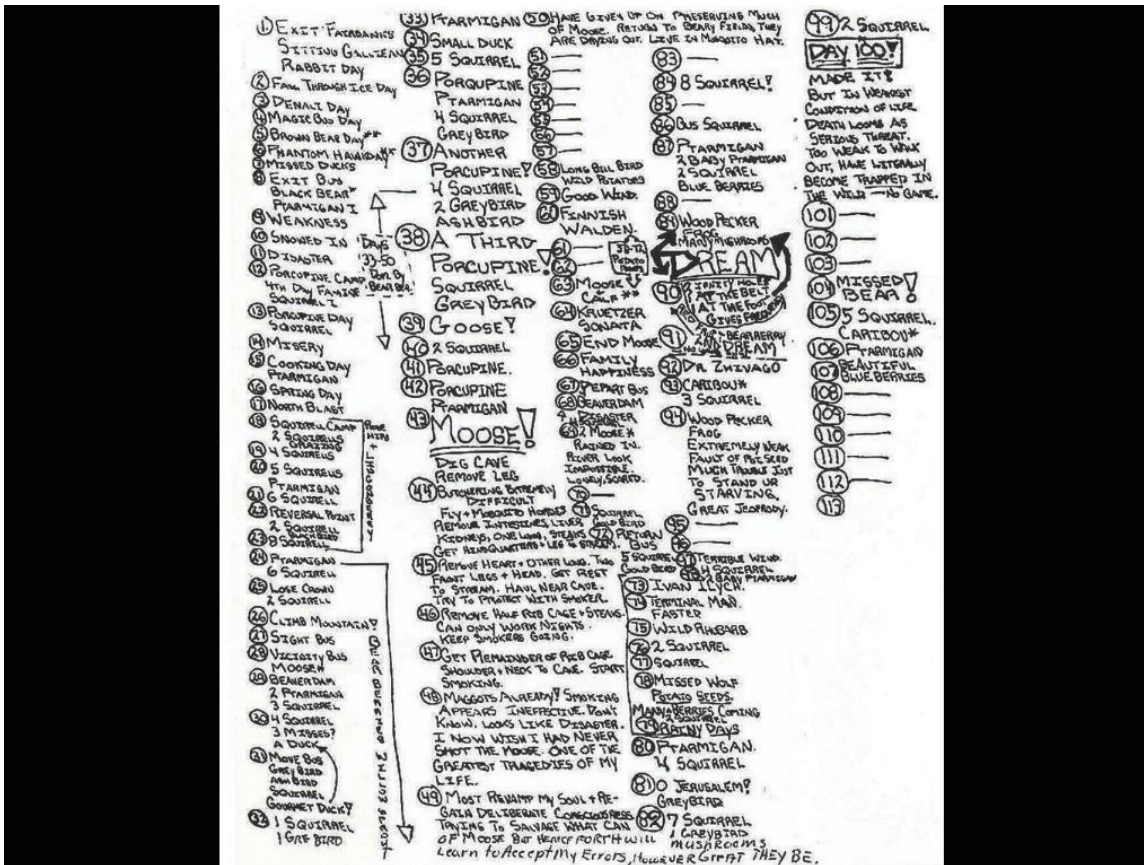 ① EXIT FAIRBANKS
SITTING GALLIEN
RABBIT DAY
② FALL THROUGH ICE DAY
③ DENALI DAY
④ MAGIC BUS DAY
⑤ BROWN BEAR DAY**
⑥ PHANTOM
⑦ MISSED DUCKS
⑧ EXIT BUS
BLACK BEAR*
PTARMIGAN I
⑨ WEAKNESS
⑩ SNOWED IN
⑪ DISASTER
⑫ PORCUPINE CAMP
4TH DAY FAMINE
SQUIRREL I
⑬ PORCUPINE DAY
SQUIRREL
⑭ MISERY
⑮ COOKING DAY
PTARMIGAN
⑯ SPRING DAY
⑰ NORTH BLAST
⑱ SQUIRRELL CAMP
2 SQUIRRELLS
GRAZING
⑲ 4 SQUIRRELLS
⑳ 5 SQUIRRELLS
PTARMIGAN
㉑ 6 SQUIRRELL
㉒ REVERSAL POINT
2 SQUIRRELL
BLACKBIRD
㉓ 8 SQUIRRELL
ROSE
HIPS +
㉔ PTARMIGAN
6 SQUIRRELL
㉕ LOSE CROWN
2 SQUIRRELL
㉖ CLIMB MOUNTAIN!
㉗ SIGHT BUS
㉘ VICINITY BUS
MOOSE*
㉙ BEAVERDAM
2 PTARMIGAN
3 SQUIRREL
㉚ 4 SQUIRREL
3 MISSES?
A DUCK
㉛ MOVE BUS
GREY BIRD
ASH BIRD
SQUIRREL
GOURMET DUCK!
㉜ 1 SQUIRREL
1 GRE BIRD
DAYS
33-50
BEAR BER.
㉝ PTARMIGAN
㉞ SMALL DUCK
㉟ 5 SQUIRREL
㊱ PORQUPINE
PTARMIGAN
4 SQUIRREL
GREYBIRD
㊲ ANOTHER
PORCUPINE!
4 SQUIRREL
2 GREYBIRD
ASHBIRD
㊳ A THIRD
PORCUPINE!
SQUIRREL
GREYBIRD
㊴ GOOSE!
㊵ 2 SQUIRREL
㊶ PORCUPINE.
㊷ PORCUPINE
PTARMIGAN
㊸ MOOSE!
DIG CAVE
REMOVE LEG
㊹ BUTCHERING EXTREMELY
DIFFICULT
FLY + MOSQUITO HORDES
REMOVE INTESTINES, LIVER
KIDNEYS, ONE LUNG, STEAKS
GET HINDQUARTERS + LEG TO STREAM.
㊺ REMOVE HEART + OTHER LUNG. TWO
FRONT LEGS + HEAD. GET REST
TO STREAM. HAUL NEAR CAVE.
TRY TO PROTECT WITH SMOKER.
㊻ REMOVE HALF RIB CAGE + STEAKS.
CAN ONLY WORK NIGHTS.
KEEP SMOKERS GOING.
㊼ GET REMAINDER OF RIB CAGE
SHOULDER + NECK TO CAVE. START
SMOKING.
㊽ MAGGOTS ALREADY! SMOKING
APPEARS INEFFECTIVE. DON'T
KNOW, LOOKS LIKE DISASTER.
I NOW WISH I HAD NEVER
SHOT THE MOOSE. ONE OF THE
GREATEST TRAGEDIES OF MY
LIFE.
㊾ MOST REVAMP MY SOUL + RE-
GAIN DELIBERATE CONSCIOUSNESS.
TRYING TO SALVAGE WHAT CAN
OF MOOSE BUT HENCEFORTH WILL
Learn to Accept My Errors, HOWEVER GREAT THEY BE.
㊿ HAVE GIVEN UP ON PRESERVING MUCH
OF MOOSE. RETURN TO BERRY FIELDS, THEY
ARE DRYING OUT. LIVE IN MOSQUITO HAT.
(51) —
(52) —
(53) —
(54) —
(55) —
(56) —
(57) —
(58) LONG BILL BIRD
WILD POTATOES
(59) GOOD WIND.
(60) FINNISH
WALDEN.
(61) —
(62) —
58-72
POTATO
(63) MOOSE
CALF**
(64) KRUETZER
SONATA
(65) END MOOSE
(66) FAMILY
HAPPINESS
(67) DEPART BUS
(68) BEAVERDAM
DISASTER
4 SQUIRREL
(69) 2 MOOSE*
RAINED IN.
RIVER LOOK
IMPOSSIBLE.
LONELY, SCARED.
(70) —
(71) SQUIRREL
GOLD BIRD
(72) RETURN
BUS
5 SQUIRREL
GOLD BIRD
(73) IVAN ILYCH.
(74) TERMINAL MAN.
FASTER
(75) WILD RHUBARB
(76) 2 SQUIRREL
(77) SQUIRREL
(78) MISSED WOLF
POTATO SEEDS.
MANY BERRIES COMING
12 SQUIRREL
(79) RAINY DAYS
(80) PTARMIGAN.
4 SQUIRREL
(81) O JERUSALEM!
GREYBIRD
(82) 7 SQUIRREL
1 GREYBIRD
MUSHROOMS
(83) —
(84) 8 SQUIRREL!
(85) —
(86) BUS SQUIRREL
(87) PTARMIGAN
2 BABY PTARMIGAN
2 SQUIRREL
BLUE BERRIES
(88) —
(89) WOOD PECKER
FROG
MANY MUSHROOMS
DREAM
(90)
AT THE BELT
AT THE FOOT
GIVES
(91) BEARBERRY
2ND DREAM
(92) DR. ZHIVAGO
(93) CARIBOU*
3 SQUIRREL
(94) WOOD PECKER
FROG
EXTREMELY WEAK
FAULT OF POT. SEED
MUCH TROUBLE JUST
TO STAND UP.
STARVING.
GREAT JEOPRODY.
(95) —
(96) —
(97) TERRIBLE WIND.
4 SQUIRREL
(98) 2 BABY PTARMIGAN
(99) 2 SQUIRREL
DAY 100!
MADE IT!
BUT IN WEAKEST
CONDITION OF LIFE
DEATH LOOMS AS
SERIOUS THREAT.
TOO WEAK TO WALK
OUT, HAVE LITERALLY
BECOME TRAPPED IN
THE WILD — NO GAME.
(101) —
(102) —
(103) —
(104) MISSED
BEAR!
(105) 5 SQUIRREL.
CARIBOU*
(106) PTARMIGAN
(107) BEAUTIFUL
BLUE BERRIES
(108) —
(109) —
(110) —
(111) —
(112) —
(113)